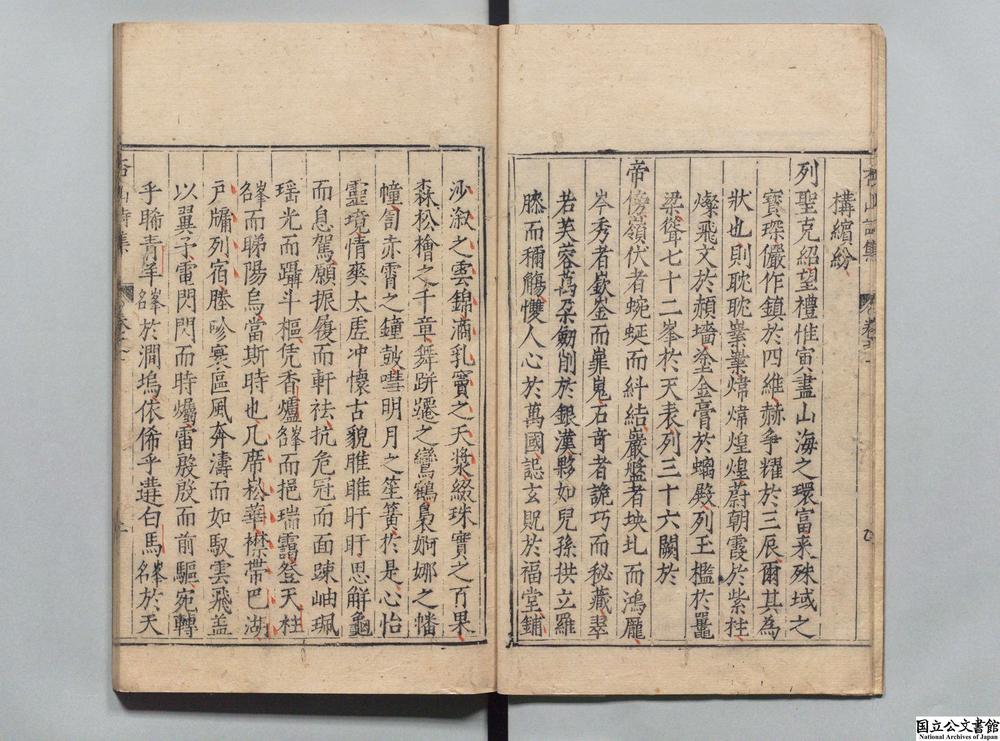 構繽紛
列聖克紹望禮惟寅盡山海之環富来殊域之
寶琛儼作鎮於四維赫争耀於三辰爾其為
狀也則耽耽業業煒煒煌煌蔚朝霞於紫柱
燦飛文於頳墻塗金膏於螭殿列玉檻於鼉
梁聳七十二峯於天表列三十六闕於
帝傍嶺伏者蜿蜒而糾結巖盤者坱圠而鴻龎
岑秀者嶔崟而嵬石竒者詭巧而秘藏翠
若芙蓉萬朵劒削於銀漢夥如兒孫拱立羅
膝而稱觴㦜人心於萬國誋玄貺於福堂鋪
沙溆之雲錦滴乳竇之天漿綴珠實之百果
森松檜之千章舞跰躚之鸞鶴裊婀娜之幡
幢訇赤霄之鐘鼓嘒明月之笙簧於是心怡
靈境情爽太虗冲懷古貌睢睢盱盱思解龜
而息駕願振履而軒袪抗危冠而面踈岫珮
瑶光而躡斗樞凭香爐峯而挹瑞靄登天柱
峯而睇陽烏當斯時也几席崧華襟帶巴湖
戶牗列宿塍畛寰區風奔濤而如馭雲飛盖
以翼予電閃閃而時爥雷殷殷而前驅宛轉
乎睎青羊峯於澗塢依俙乎遘白馬峯於天
国立公文書館
National Archives of Japan